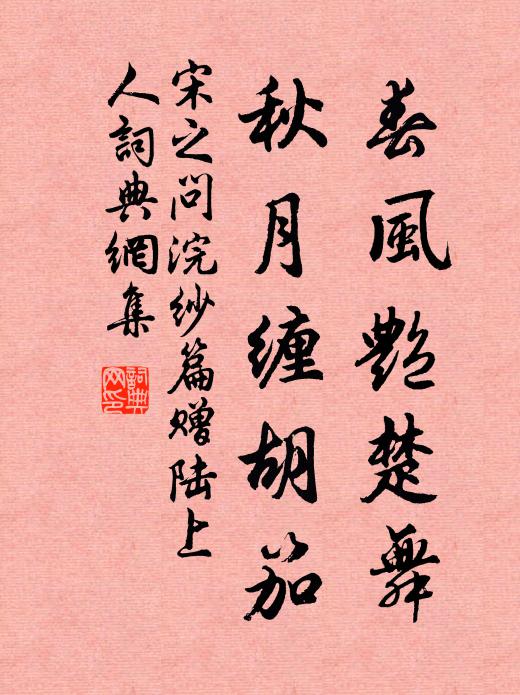 春風艷楚舞
秋月纏胡笳
宋之问浣紗篇赠陆上
人詞典網集
詞典
网印